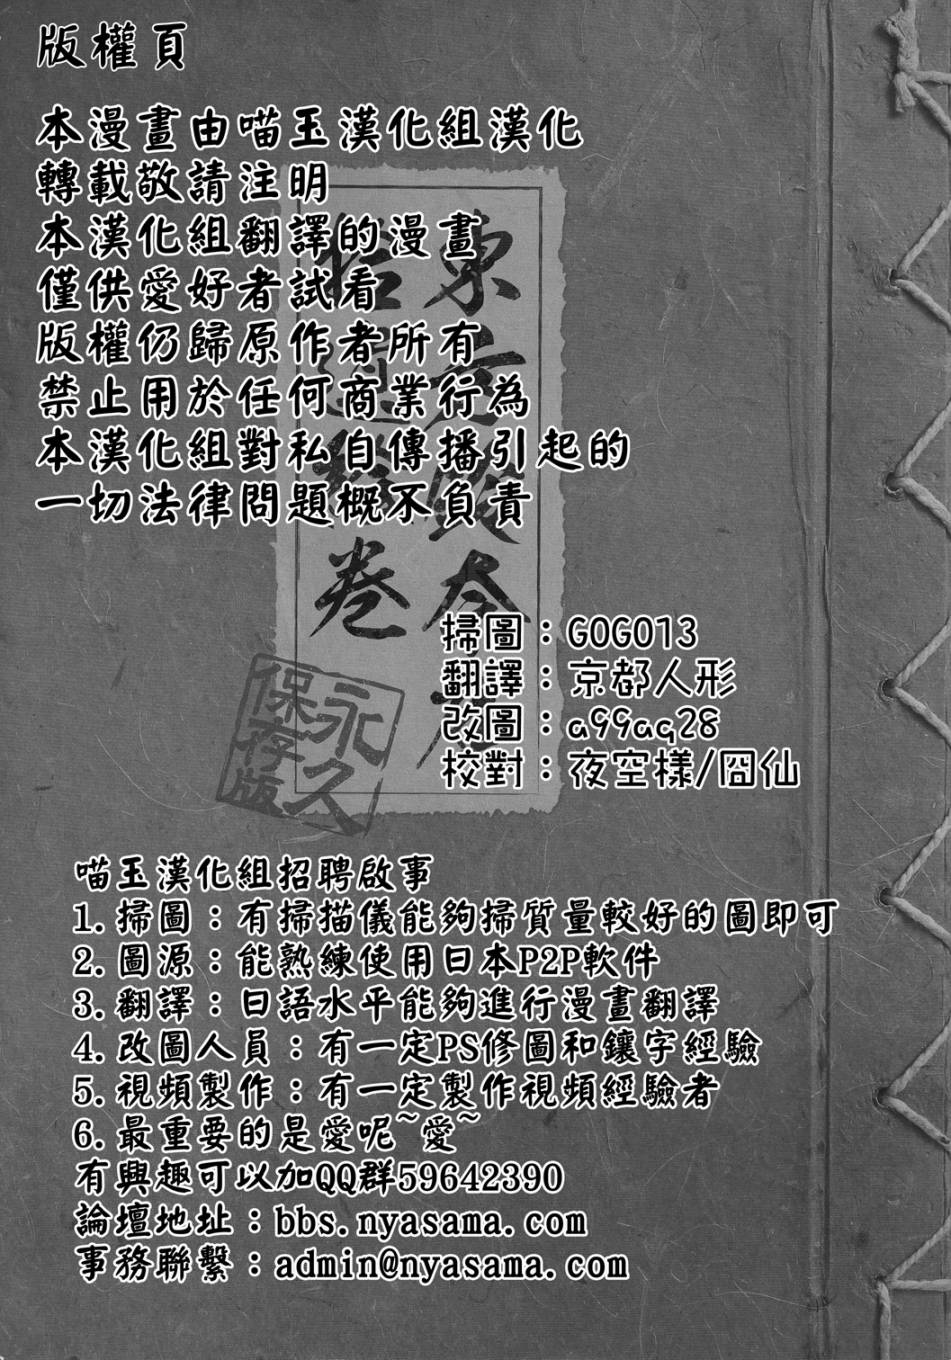 版權頁
本漫畫由喵玉漢化組漢化
轉載敬請注明
本漢化組翻譯的漫畫
僅供愛好者試看
版權仍歸原作者所有
禁止用於任何商業行為
本漢化組對私自傳播引起的
一切法律問題概不負責
卷
永久
保存版
掃圖：GOGO13
翻譯：京都人形
改圖：a99aq28
校對：夜空樣/囧仙
喵玉漢化組招聘啟事
1.掃圖：有掃描儀能夠掃質量較好的圖即可
2.圖源：能熟練使用日本P2P軟件
3.翻譯：日語水平能夠進行漫畫翻譯
4.改圖人員：有一定PS修圖和鑲字經驗
5.視頻製作：有一定製作視頻經驗者
6.最重要的是愛呢~愛~
有興趣可以加QQ群59642390
論壇地址：bbs.nyasama.com
事務聯繫：admin@nyasama.com